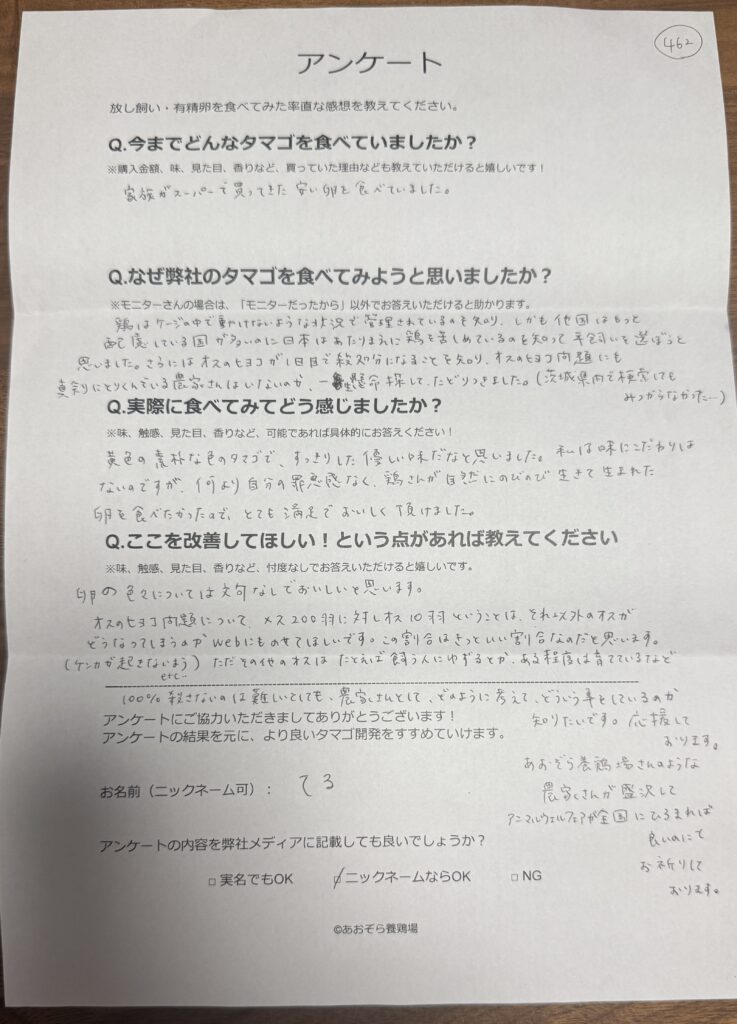 462
アンケート
放し飼い・有精卵を食べてみた率直な感想を教えてください。
Q.今までどんなタマゴを食べていましたか？
※購入金額、味、見た目、香りなど、買っていた理由なども教えていただけると嬉しいです！
家族がスーパーで買ってきた安い卵を食べていました。
Q.なぜ弊社のタマゴを食べてみようと思いましたか？
※モニターさんの場合は、「モニターだったから」以外でお答えいただけると助かります。
鶏はケージの中で動けないような状況で管理されているのを知り、しかも他国はもっと
配慮している国が多いのに日本はあたりまえに鶏を苦しめているのを知って平飼いを選ぼうと
思いました。さらにはオスのヒヨコが1日目で殺処分になることを知り、オスのヒヨコ問題にも
真剣にとりくんでいる農家さんはいないのか、一生懸命探して、たどりつきました。(茨城県内で検索しても
みつからなかった…)
Q.実際に食べてみてどう感じましたか？
※味、触感、見た目、香りなど、可能であれば具体的にお答えください！
黄色の素朴な色のタマゴで、すっきりした優しい味だなと思いました。私は味にこだわりは
ないのですが、何より自分の罪悪感なく、鶏さんが自然にのびのび生きて生まれた
卵を食べたかったので、とても満足でおいしく頂けました。
Q.ここを改善してほしい！という点があれば教えてください
※味、触感、見た目、香りなど、忖度なしでお答えいただけると嬉しいです。
卵の色々については文句なしでおいしいと思います。
オスのヒヨコ問題について、メス200羽に対しオス10羽ということは、それ以外のオスが
どうなってしまうのかWebにものせてほしいです。この割合はきっといい割合なのだと思います。
(ケンカが起きないよう etc…) ただその他のオスはたとえば飼う人にゆずるとか、ある程度は育てているなど
100%殺さないのは難しいとしても、農家さんとして、どのように考えて、どういう事をしているのか
知りたいです。応援して
おります。
アンケートにご協力いただきましてありがとうございます！
アンケートの結果を元に、より良いタマゴ開発をすすめていけます。
あおぞら養鶏場さんのような
農家さんが盛況して
アニマルウェルフェアが全国にひろまれば
良いのにと
お祈りして
おります。
お名前（ニックネーム可）： てる
アンケートの内容を弊社メディアに記載しても良いでしょうか？
□ 実名でもOK ☑ニックネームならOK □ NG
©あおぞら養鶏場